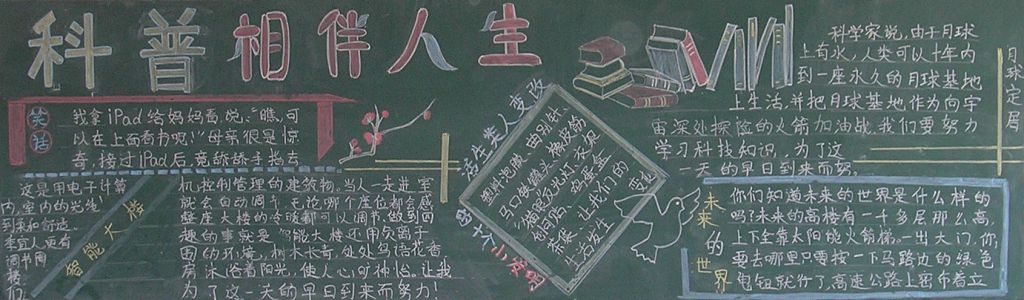 科普相伴人生
笑话
我拿iPad给妈妈看说:"瞧,可
以在上面看书呢!"母亲很是惊
奇,接过iPad后,竟舔舔手指去
智能大楼
这是用电子计算
机控制管理的建筑物。当人一走进室
内,室内的光线
就会自动调节,无论哪个座位都会感
到柔和舒适。
整座大楼的冷暖都可以调节。做到四
趣的事就是智能大楼还用欠离子
调节周
面的环境,树木长青,处处鸟语花香
楼们
房沐浴着阳光,使人心旷神怡。让我
为了这一天的早日到来而努力!
活生类人变改
的十个小发明
塑料泡吸
马口铁罐头
猫眼反光灯
创可贴
茶袋
让我们的
生活发生
科学家说,由于月球
上有水,人类可以十年内
到一座永久的月球基地
上生活,并把月球基地作为向宇
宙深处探险的火箭加油战,我们要努力
学习科技知识,为了这
一天的早日到来而努。
月球定居
未来的世界
你们知道未来的世界是什么样的
吗?未来的高楼有一千多层那么高,
上下全靠太阳能火箭梯。一出大门,你
要去哪里只需按一下马路边的绿色
电钮就行了,高速公路上密布着立